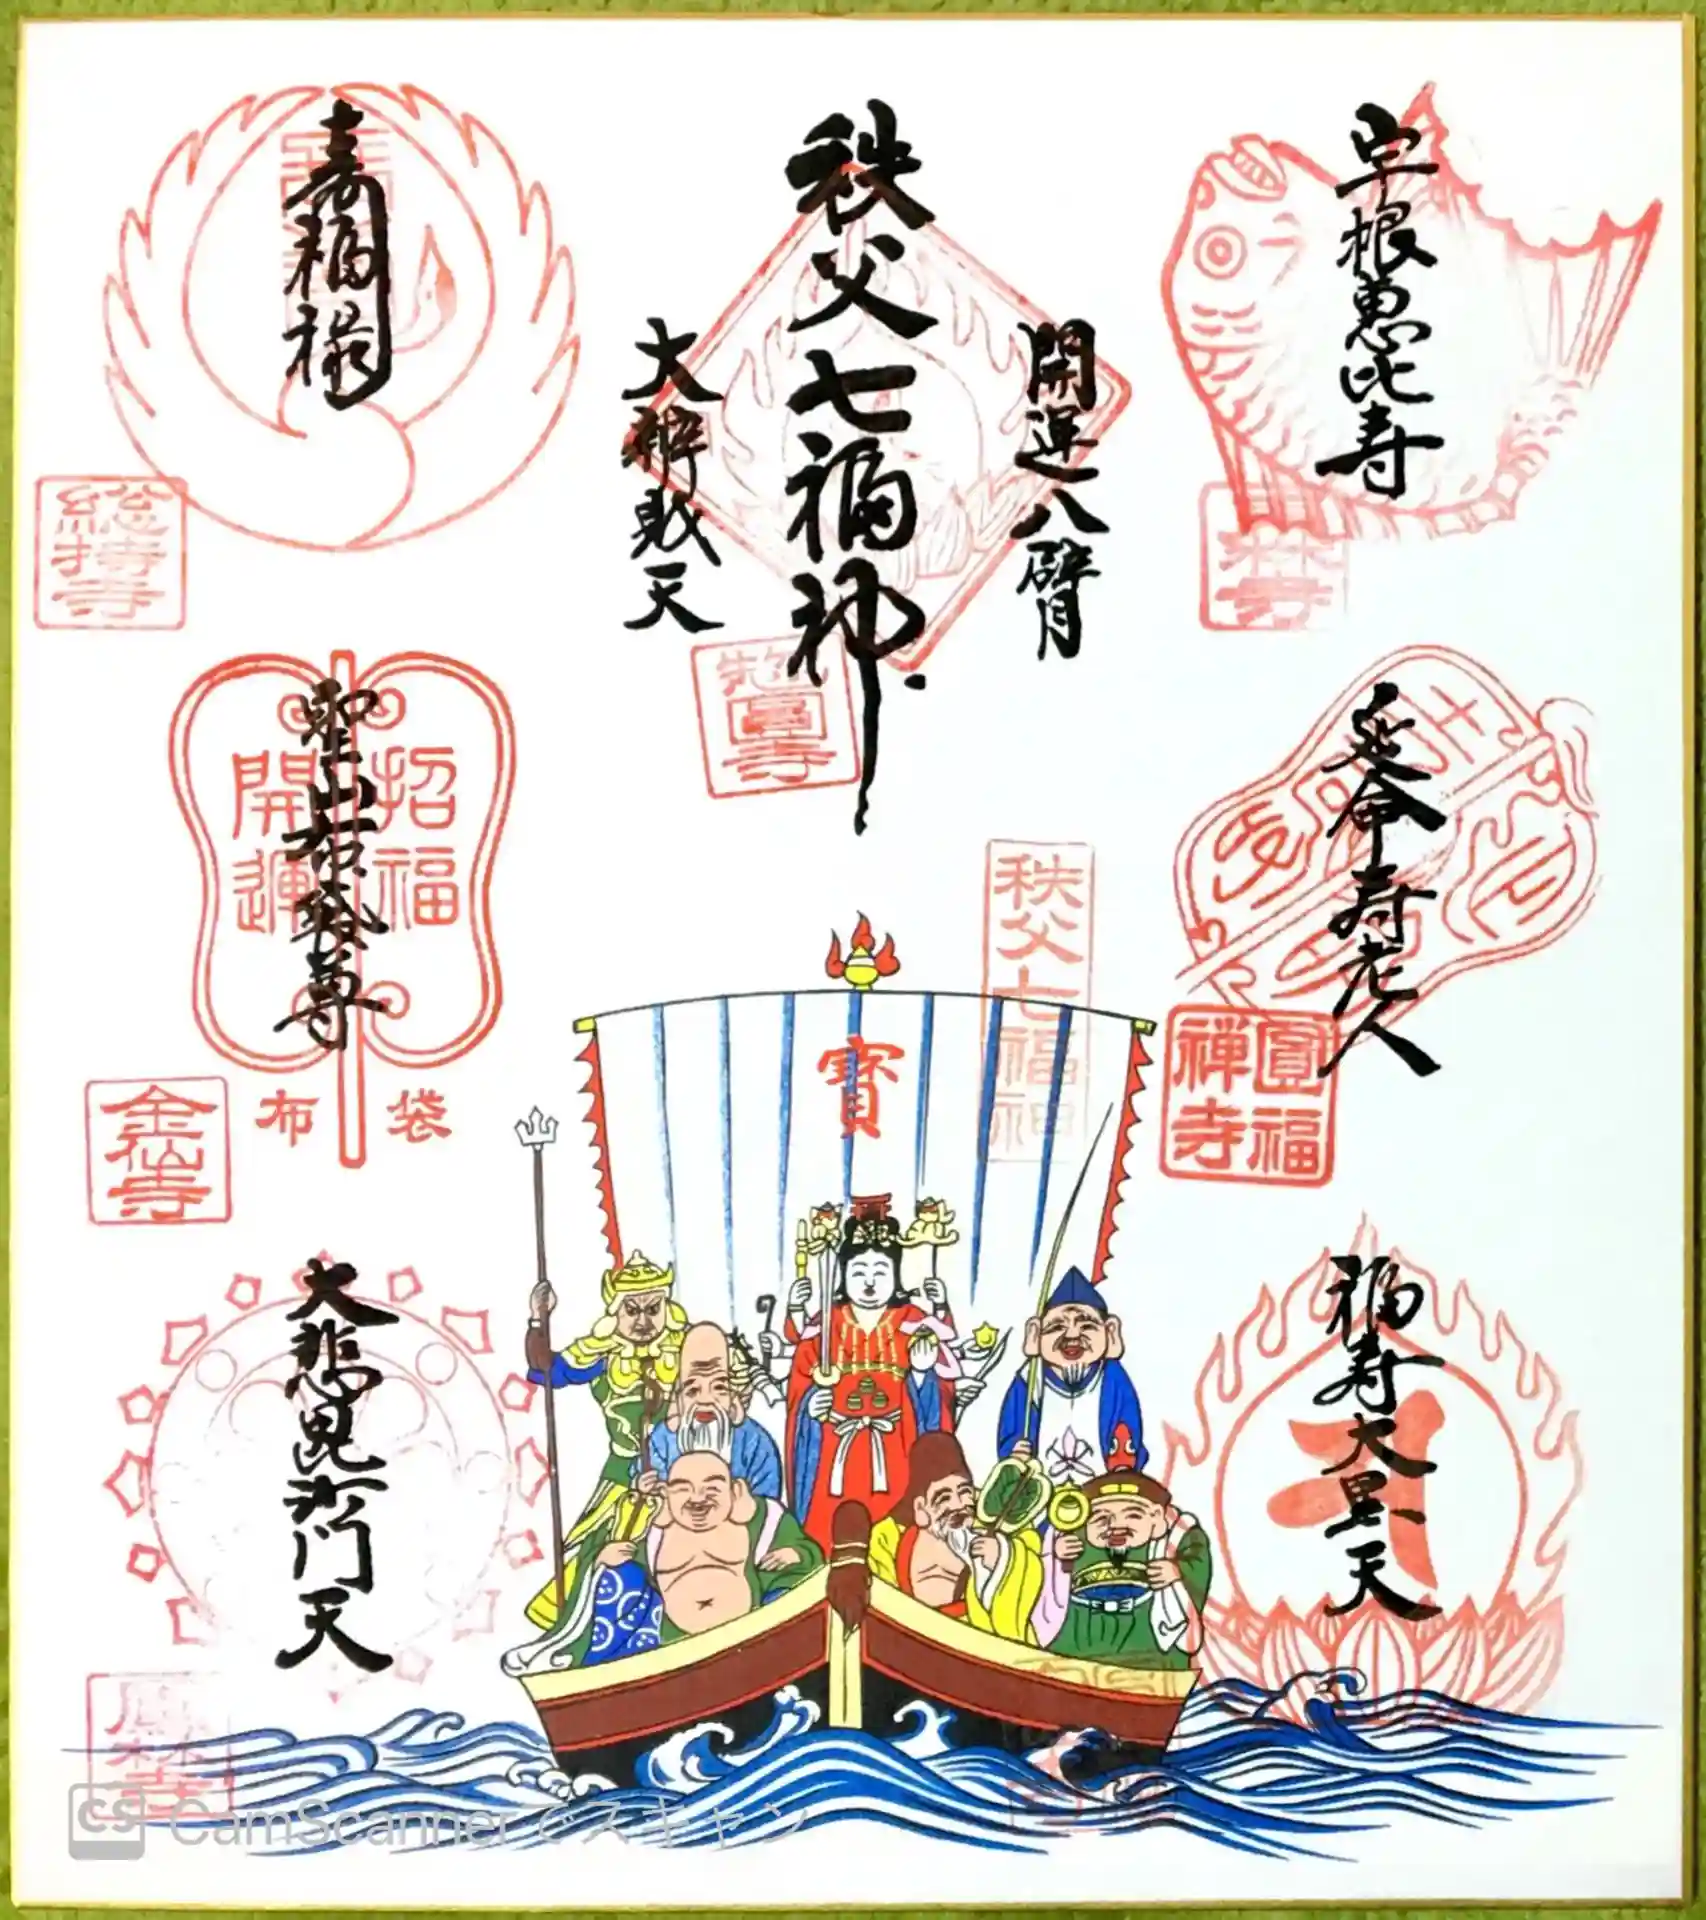 早根恵比寿
秩父七福神
開運八臂
大辨財天
寿福禄
総持寺
惣圓寺
延命寿老人
圓福
禅寺
聖山布袋尊
招福
開運
布袋
金仙寺
秩父七福神
寶
福寿大黒天
大悲毘沙門天
鳳林寺
CS CamScannerでスキャン